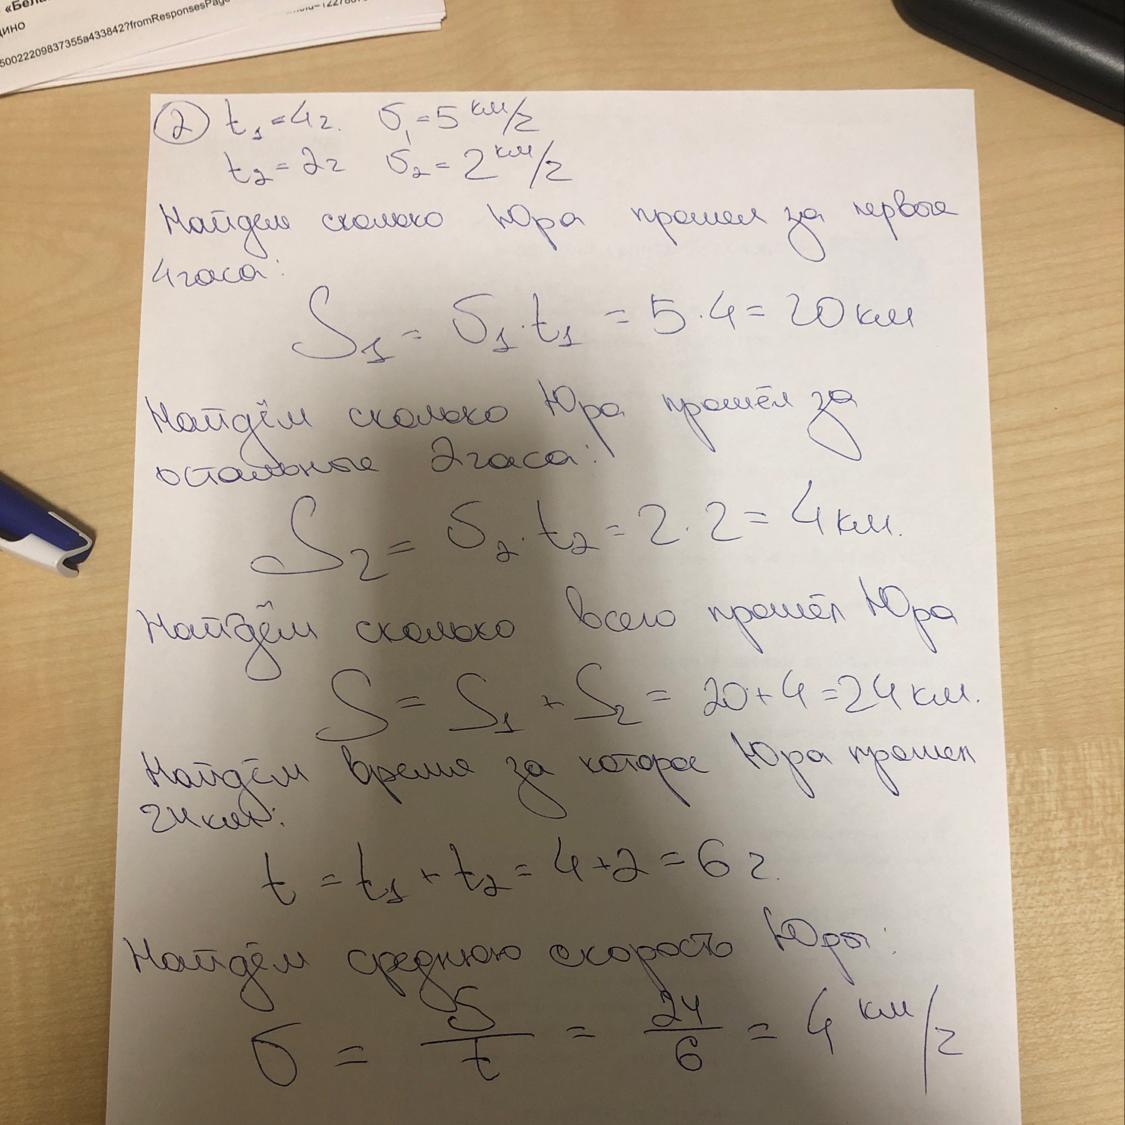 «Бела
ЦИНО
50022209837355a433842?fromResponsesPage
② t₁=4ч. σ₁=5 км/ч
t₂=2ч σ₂=2 км/ч
Найдем сколько Юра прошел за первые
4часа:
S₁ = σ₁·t₁ = 5·4= 20 км
Найдём сколько Юра прошёл за
остальные 2часа:
S₂ = σ₂·t₂ = 2·2= 4 км.
Найдём сколько всего прошёл Юра
S = S₁ + S₂ = 20+4=24 км.
Найдём время за которое Юра прошел
24км:
t = t₁ + t₂ = 4+2=6 ч.
Найдём среднюю скорость Юры:
σ = S/t = 24/6 = 4 км/ч